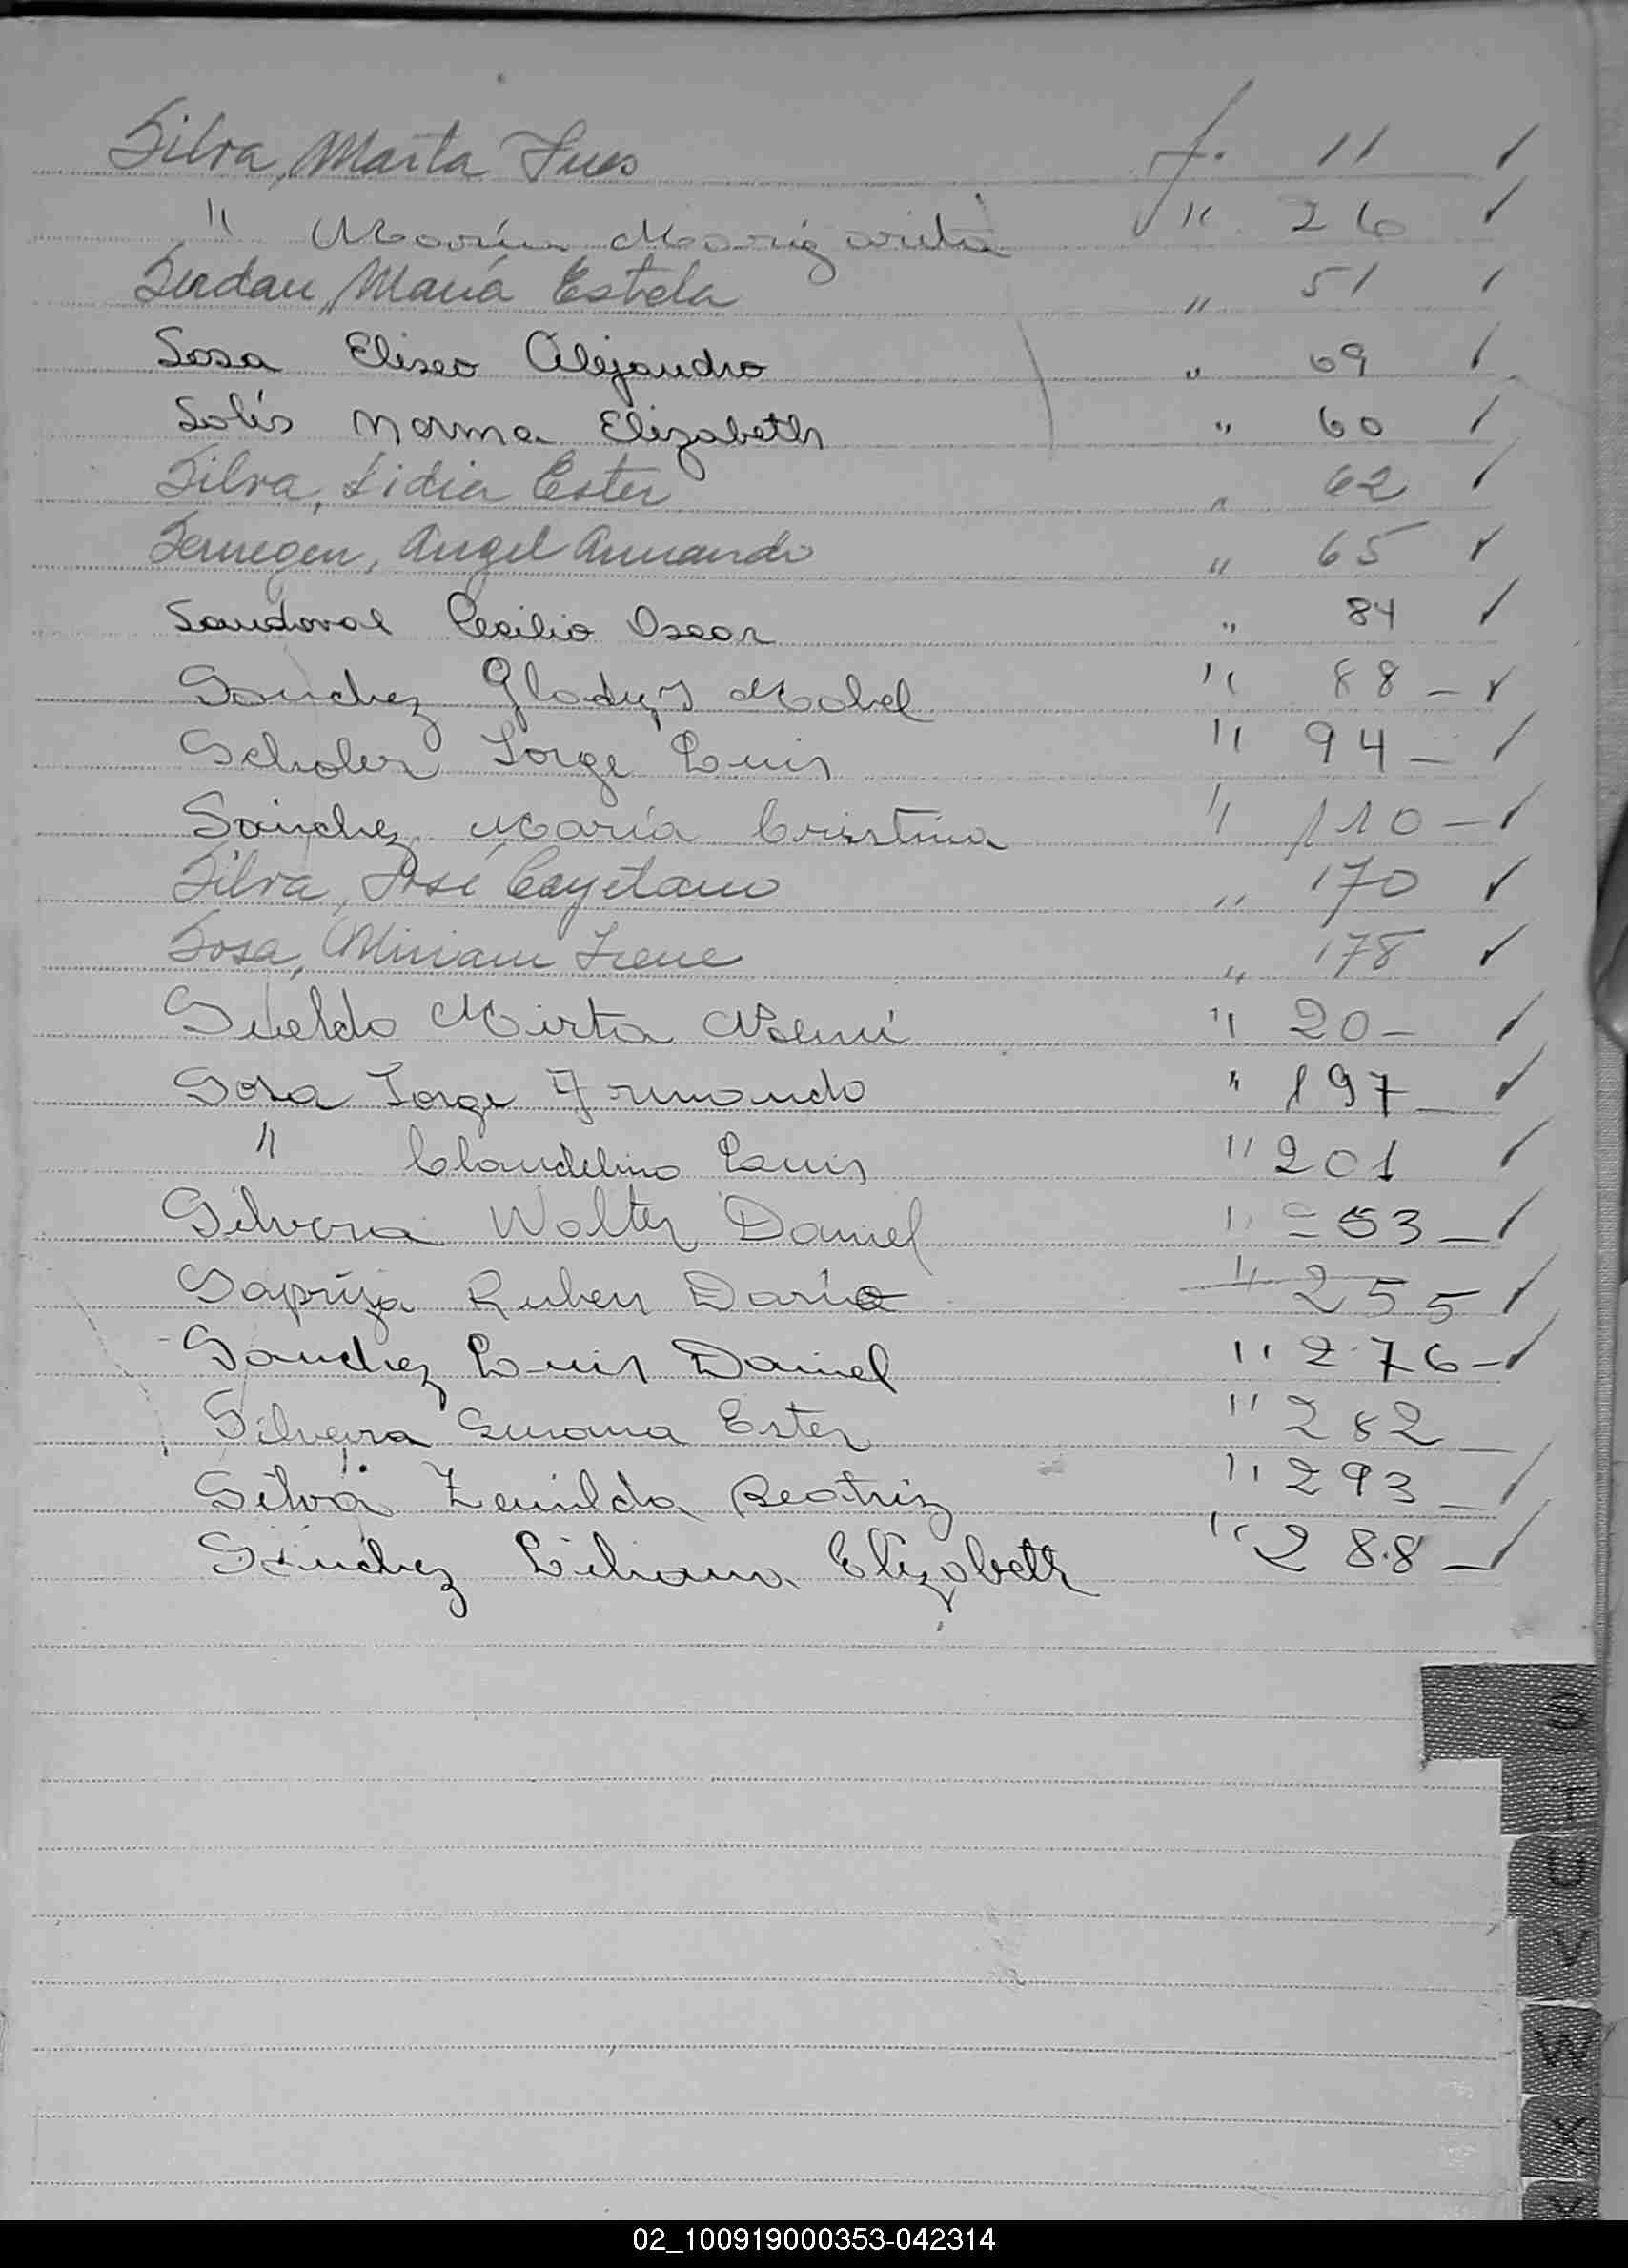 Silva, Marta Ines f. 11 ✓
" María Margarita " 26 ✓
María Estela " 51 ✓
Sosa Eliseo Alejandro " 69 ✓
Solís Norma Elizabeth " 60 ✓
Silva, Lidia Ester " 62 ✓
Angel Armando " 65 ✓
Sandoval Cecilio Oscar " 84 ✓
Sanchez Gladys Mabel " 88 - ✓
Scholer Jorge Luis " 94 - ✓
Sánchez María Cristina " 110 - ✓
Silva, José Cayetano " 170 ✓
Sosa, Miriam Irene " 178 ✓
Sueldo Mirta Noemí " 20 - ✓
Sosa Jorge Armando " 197 - ✓
" Claudelino Luis " 201 ✓
Silvera Walter Daniel " 253 - ✓
Sapriza Ruben Darío " 255 ✓
Sanchez Luis Daniel " 276 - ✓
Silveira Susana Ester " 282 -
Silva Zenilda Beatriz " 293 - ✓
Sánchez Liliana Elizabeth " 288 - ✓
S
T
U
V
W
X
Y
02_100919000353-042314